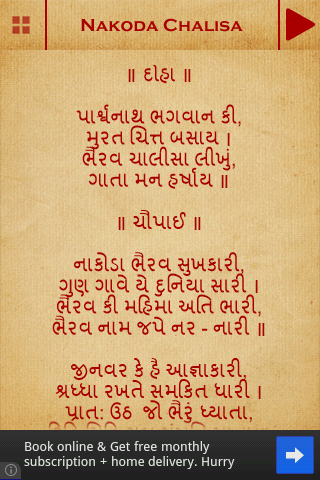 NAKODA CHALISA
॥ દોહા ॥
પાર્શ્વનાથ ભગવાન કી,
મુરત ચિત્ત બસાય ।
ભૈરવ ચાલીસા લીખું,
ગાતા મન હર્ષાય ॥
॥ ચૌપાઈ ॥
નાકોડા ભૈરવ સુખકારી,
ગુણ ગાવે યે દુનિયા સારી ।
ભૈરવ કી મહિમા અતિ ભારી,
ભૈરવ નામ જપે નર - નારી ॥
જીનવર કે હૈ આજ્ઞાકારી,
શ્રધ્ધા રખતે સમકિત ધારી ।
પ્રાત: ઉઠ જો ભૈરૂં ધ્યાતા,
Book online & Get free monthly
subscription + home delivery. Hurry